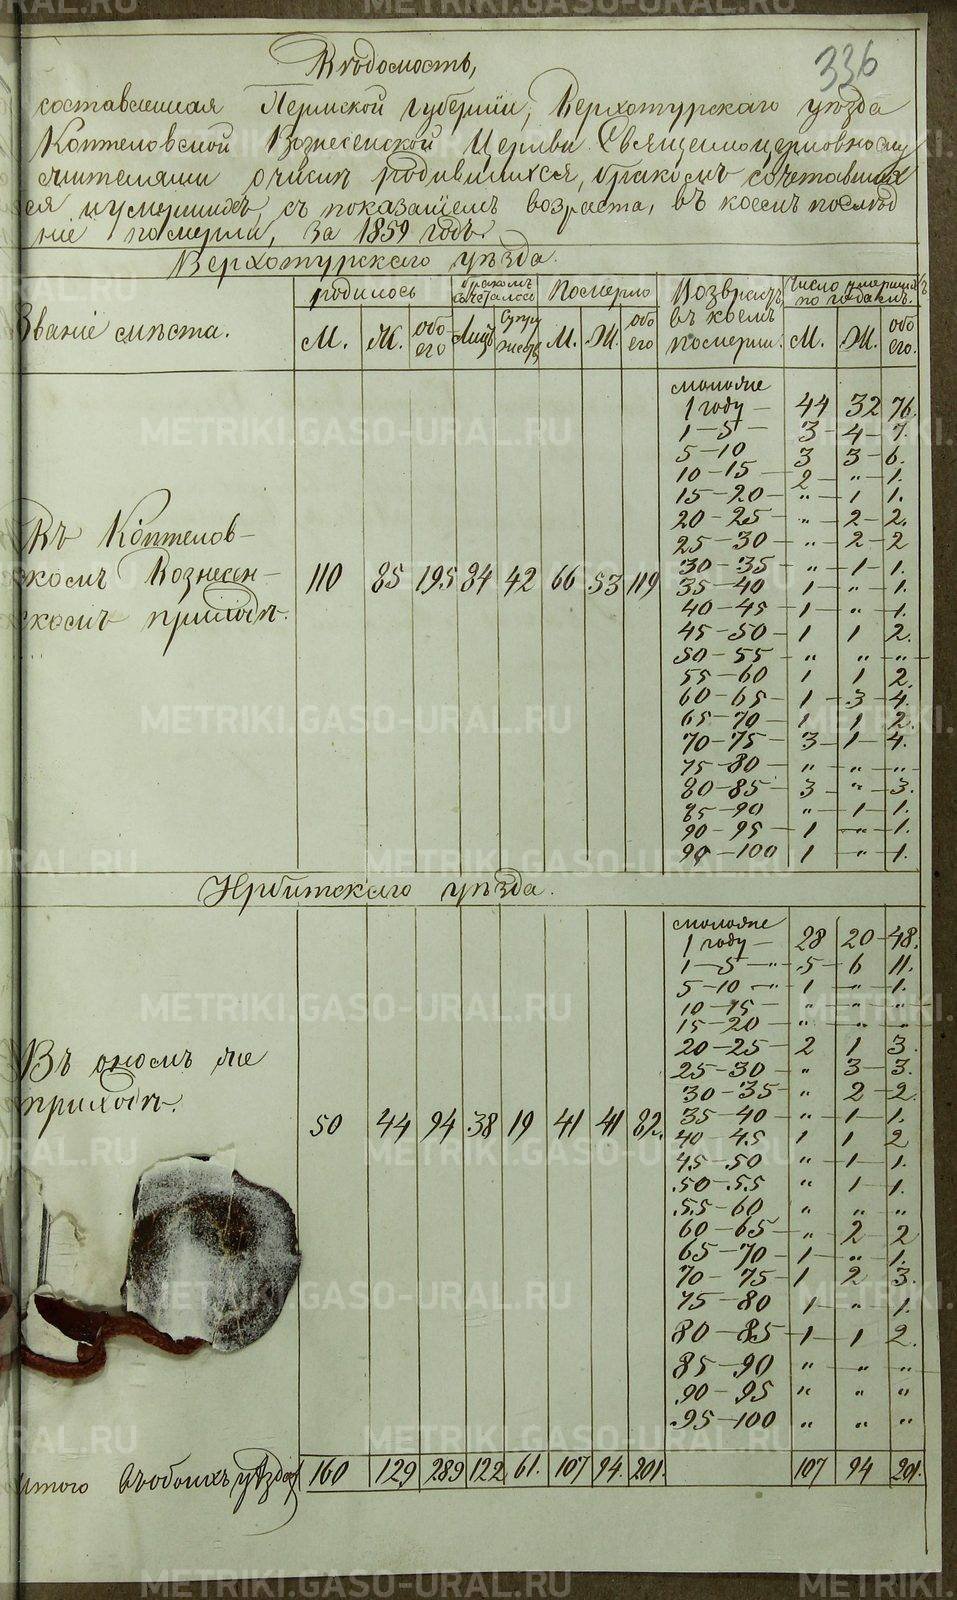 336
Вѣдомость,
составленная Пермской губерніи, Верхотурскаго уѣзда
Коптеловской Вознесенской Церкви Священноцерковнослу
жителями о числѣ родившихся, бракомъ сочетавших
ся и умершихъ, съ показаніемъ возраста, въ коемъ послѣд
ніе померли, за 1859 годъ.
Верхотурскаго уѣзда.
Званіе мѣста. родилось бракомъ сочеталось Померло Возрастъ въ коемъ померли. Число умершихъ по годамъ.
М. Ж. обо его Лицъ Супру жествъ М. Ж. обо его М. Ж. обо его.
моложе
1 году — 44 32 76.
1—5 — 3 — 4 — 7.
5—10 3 3 — 6.
10—15 — 2 — „ — 1.
15—20 — „ — 1 1.
20—25 — „ — 2 — 2.
25—30 — „ — 2 — 2
30—35 — „ — 1 — 1.
Въ Коптелов-
скомъ Вознесен-
скомъ приходѣ. 110 85 195 84 42 66 53 119
35—40 — 1 — „ — 1.
40—45 — 1 — „ — 1.
45—50 — 1 1 2.
50—55 — „ „ — „
55—60 1 1 2.
60—65 — 1 — 3 — 4.
65—70 — 1 1 2.
70—75 — 3 — 1 — 4.
75—80 — „ — „ — „
80—85 — 3 — „ — 3.
85—90 „ — 1 — 1.
90—95 — 1 — „ — 1.
95—100 1 — „ — 1.
Ирбитскаго уѣзда.
моложе
1 году — 28 20 — 48.
1—5 — „ — 5 — 6 11.
5—10 — „ — 1 — „ — 1.
10—15 — „ — „ — „
15—20 — „ — „ — „
20—25 — 2 1 3.
25—30 — „ — 3 — 3.
30—35 „ — 2 — 2.
Въ ономъ же
приходѣ. 50 44 94 38 19 41 41 82.
35—40 — „ — 1 — 1.
40—45 1 1 2
45—50 „ — 1 — 1.
50—55 „ — 1 1.
55—60 „ „ „
60—65 — „ — 2 — 2
65—70 — 1 — „ — 1.
70—75 — 1 2 3.
75—80 1 — „ — 1.
80—85 — 1 — 1 2.
85—90 „ — „ — „
90—95 „ „ „
95—100 „ „ „
Итого въ обоихъ уѣздахъ 160 129 289 122 61. 107 94. 201. 107 94 201.
METRIKI.GASO-URAL.RU